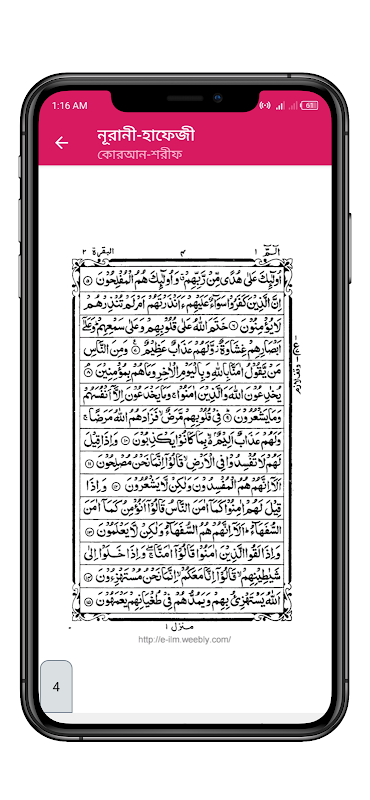 1:16 AM
নূরানী-হাফেজী
কোরআন-শরীফ
البقرة ٢
٣
الٓمّٓ ١
اُولٰٓئِكَ عَلٰى هُدًى مِّنْ رَّبِّهِمْ ۗ وَاُولٰٓئِكَ هُمُ الْمُفْلِحُوْنَ ۝٥
اِنَّ الَّذِيْنَ كَفَرُوْا سَوَآءٌ عَلَيْهِمْ ءَاَنْذَرْتَهُمْ اَمْ لَمْ تُنْذِرْهُمْ
لَا يُؤْمِنُوْنَ ۝٦ خَتَمَ اللّٰهُ عَلٰى قُلُوْبِهِمْ وَعَلٰى سَمْعِهِمْ ۗ وَعَلٰٓى
اَبْصَارِهِمْ غِشَاوَةٌ ۡ وَّلَهُمْ عَذَابٌ عَظِيْمٌ ۝٧ وَمِنَ النَّاسِ
مَنْ يَّقُوْلُ اٰمَنَّا بِاللّٰهِ وَبِالْيَوْمِ الْاٰخِرِ وَمَا هُمْ بِمُؤْمِنِيْنَ ۝٨
يُخٰدِعُوْنَ اللّٰهَ وَالَّذِيْنَ اٰمَنُوْا ۚ وَمَا يَخْدَعُوْنَ اِلَّآ اَنْفُسَهُمْ
وَمَا يَشْعُرُوْنَ ۝٩ فِيْ قُلُوْبِهِمْ مَّرَضٌ ۙ فَزَادَهُمُ اللّٰهُ مَرَضًا ۚ
وَلَهُمْ عَذَابٌ اَلِيْمٌ ۢ بِمَا كَانُوْا يَكْذِبُوْنَ ۝١٠ وَاِذَا قِيْلَ
لَهُمْ لَا تُفْسِدُوْا فِي الْاَرْضِ ۙ قَالُوْٓا اِنَّمَا نَحْنُ مُصْلِحُوْنَ ۝١١
اَلَآ اِنَّهُمْ هُمُ الْمُفْسِدُوْنَ وَلٰكِنْ لَّا يَشْعُرُوْنَ ۝١٢ وَاِذَا
قِيْلَ لَهُمْ اٰمِنُوْا كَمَآ اٰمَنَ النَّاسُ قَالُوْٓا اَنُؤْمِنُ كَمَآ اٰمَنَ
السُّفَهَآءُ ۗ اَلَآ اِنَّهُمْ هُمُ السُّفَهَآءُ وَلٰكِنْ لَّا يَعْلَمُوْنَ ۝١٣
وَاِذَا لَقُوا الَّذِيْنَ اٰمَنُوْا قَالُوْٓا اٰمَنَّا ۚ وَاِذَا خَلَوْا اِلٰى
شَيٰطِيْنِهِمْ ۙ قَالُوْٓا اِنَّا مَعَكُمْ ۙ اِنَّمَا نَحْنُ مُسْتَهْزِءُوْنَ ۝١٤
اَللّٰهُ يَسْتَهْزِئُ بِهِمْ وَيَمُدُّهُمْ فِيْ طُغْيَانِهِمْ يَعْمَهُوْنَ ۝١٥
منزل ١
http://e-ilm.weebly.com/
4